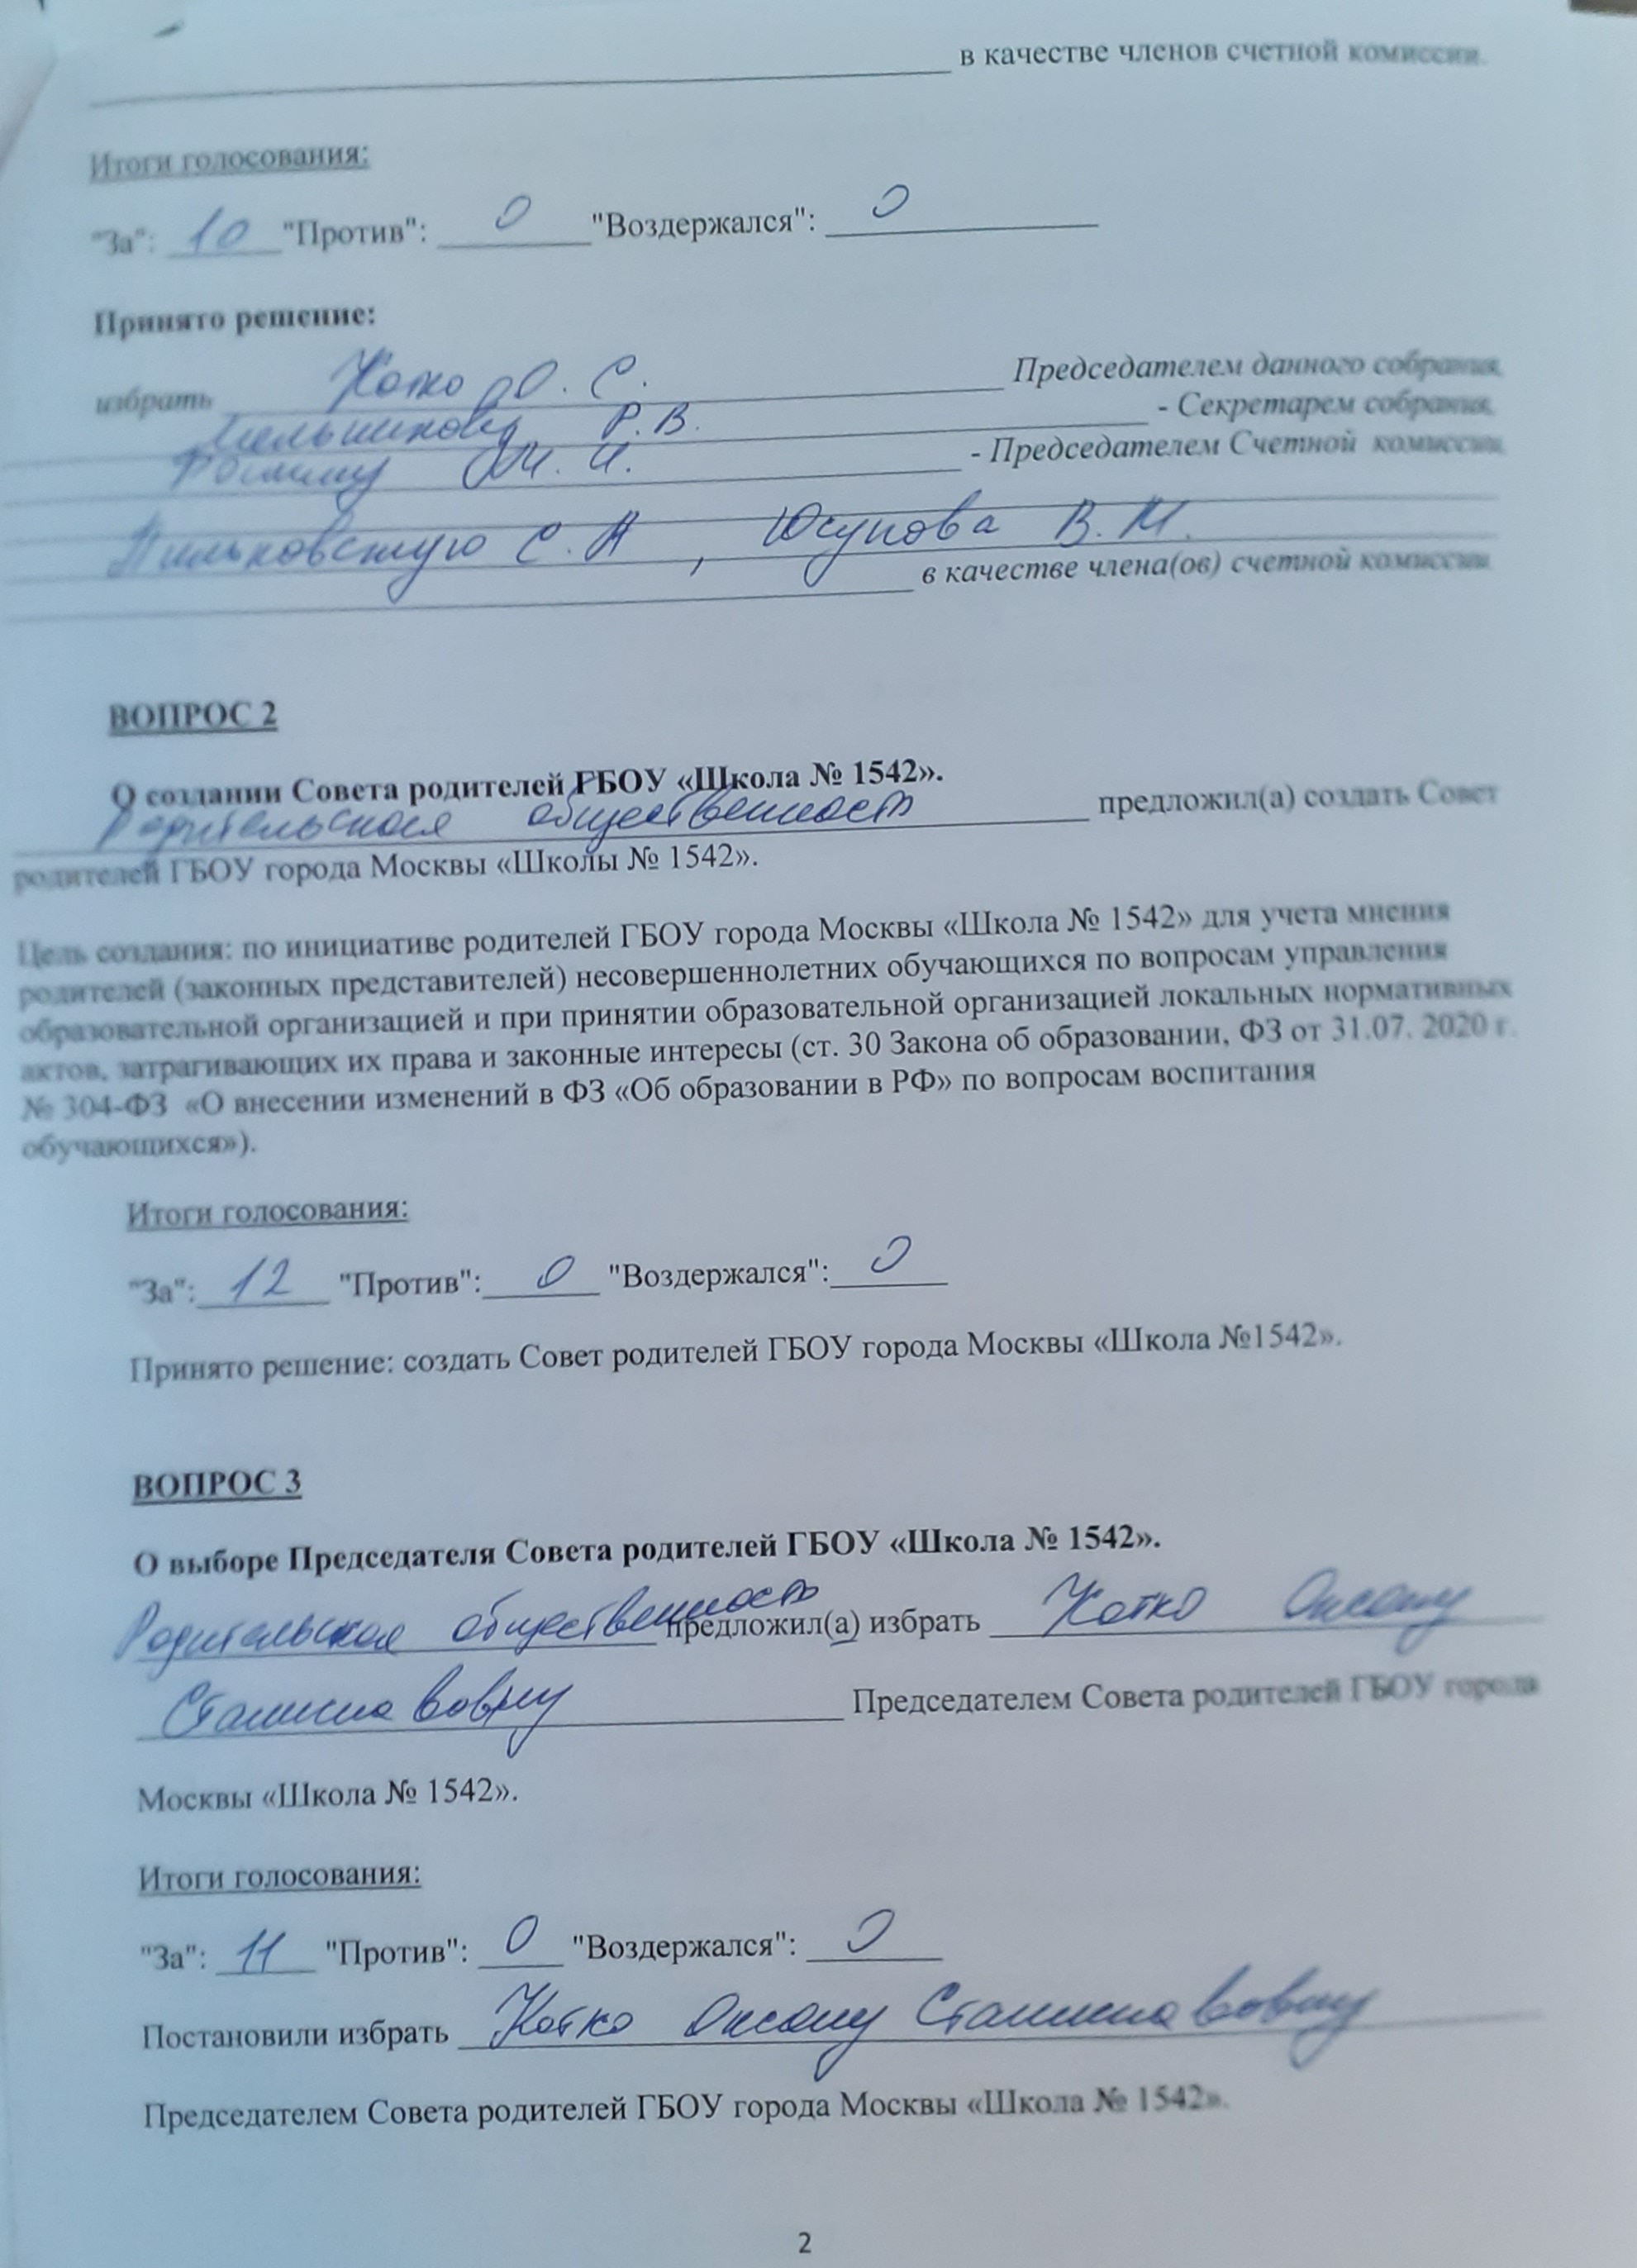 в качестве членов счетной комиссии.
Итоги голосования:
"За": 10 "Против": 0 "Воздержался": 0
Принято решение:
избрать Котко О. С. Председателем данного собрания,
Мельникову Р.В. - Секретарем собрания,
И. - Председателем Счетной комиссии,
С. А, Юсупова В. М.
в качестве члена(ов) счетной комиссии
ВОПРОС 2
О создании Совета родителей ГБОУ «Школа № 1542».
Родительская общественность предложил(а) создать Совет
родителей ГБОУ города Москвы «Школы № 1542».
Цель создания: по инициативе родителей ГБОУ города Москвы «Школа № 1542» для учета мнения
родителей (законных представителей) несовершеннолетних обучающихся по вопросам управления
образовательной организацией и при принятии образовательной организацией локальных нормативных
актов, затрагивающих их права и законные интересы (ст. 30 Закона об образовании, ФЗ от 31.07. 2020 г.
№ 304-ФЗ «О внесении изменений в ФЗ «Об образовании в РФ» по вопросам воспитания
обучающихся»).
Итоги голосования:
"За": 12 "Против": 0 "Воздержался": 0
Принято решение: создать Совет родителей ГБОУ города Москвы «Школа №1542».
ВОПРОС 3
О выборе Председателя Совета родителей ГБОУ «Школа № 1542».
Родительская общественность предложил(а) избрать Котко Оксану
Станиславовну Председателем Совета родителей ГБОУ города
Москвы «Школа № 1542».
Итоги голосования:
"За": 11 "Против": 0 "Воздержался": 0
Постановили избрать Котко Оксану Станиславовну
Председателем Совета родителей ГБОУ города Москвы «Школа № 1542».
2